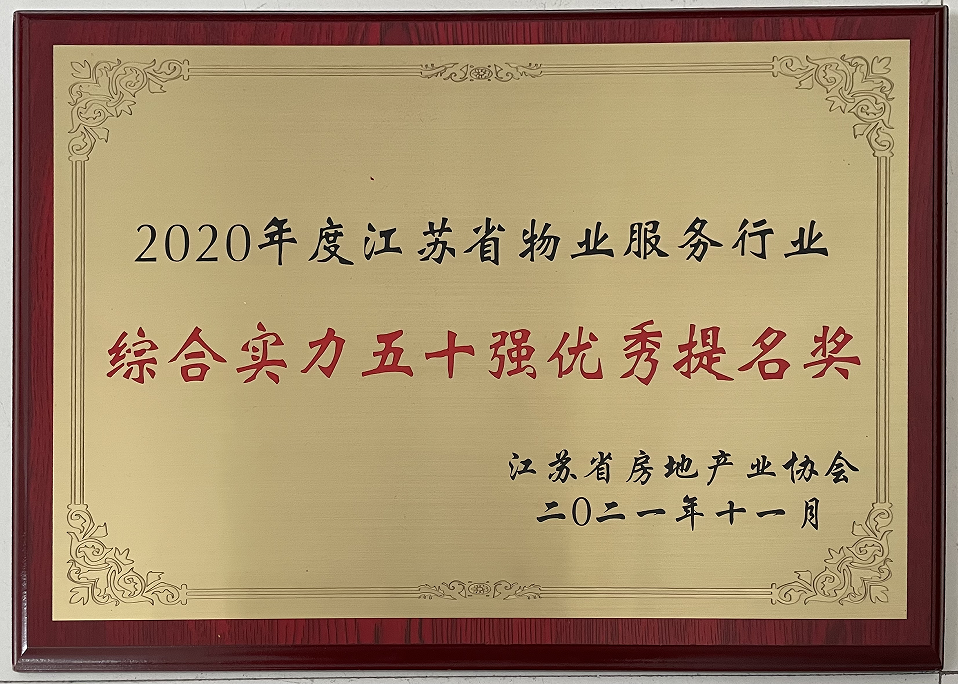 2020年度江苏省物业服务行业
综合实力五十强优秀提名奖
江苏省房地产业协会
二0二一年十一月